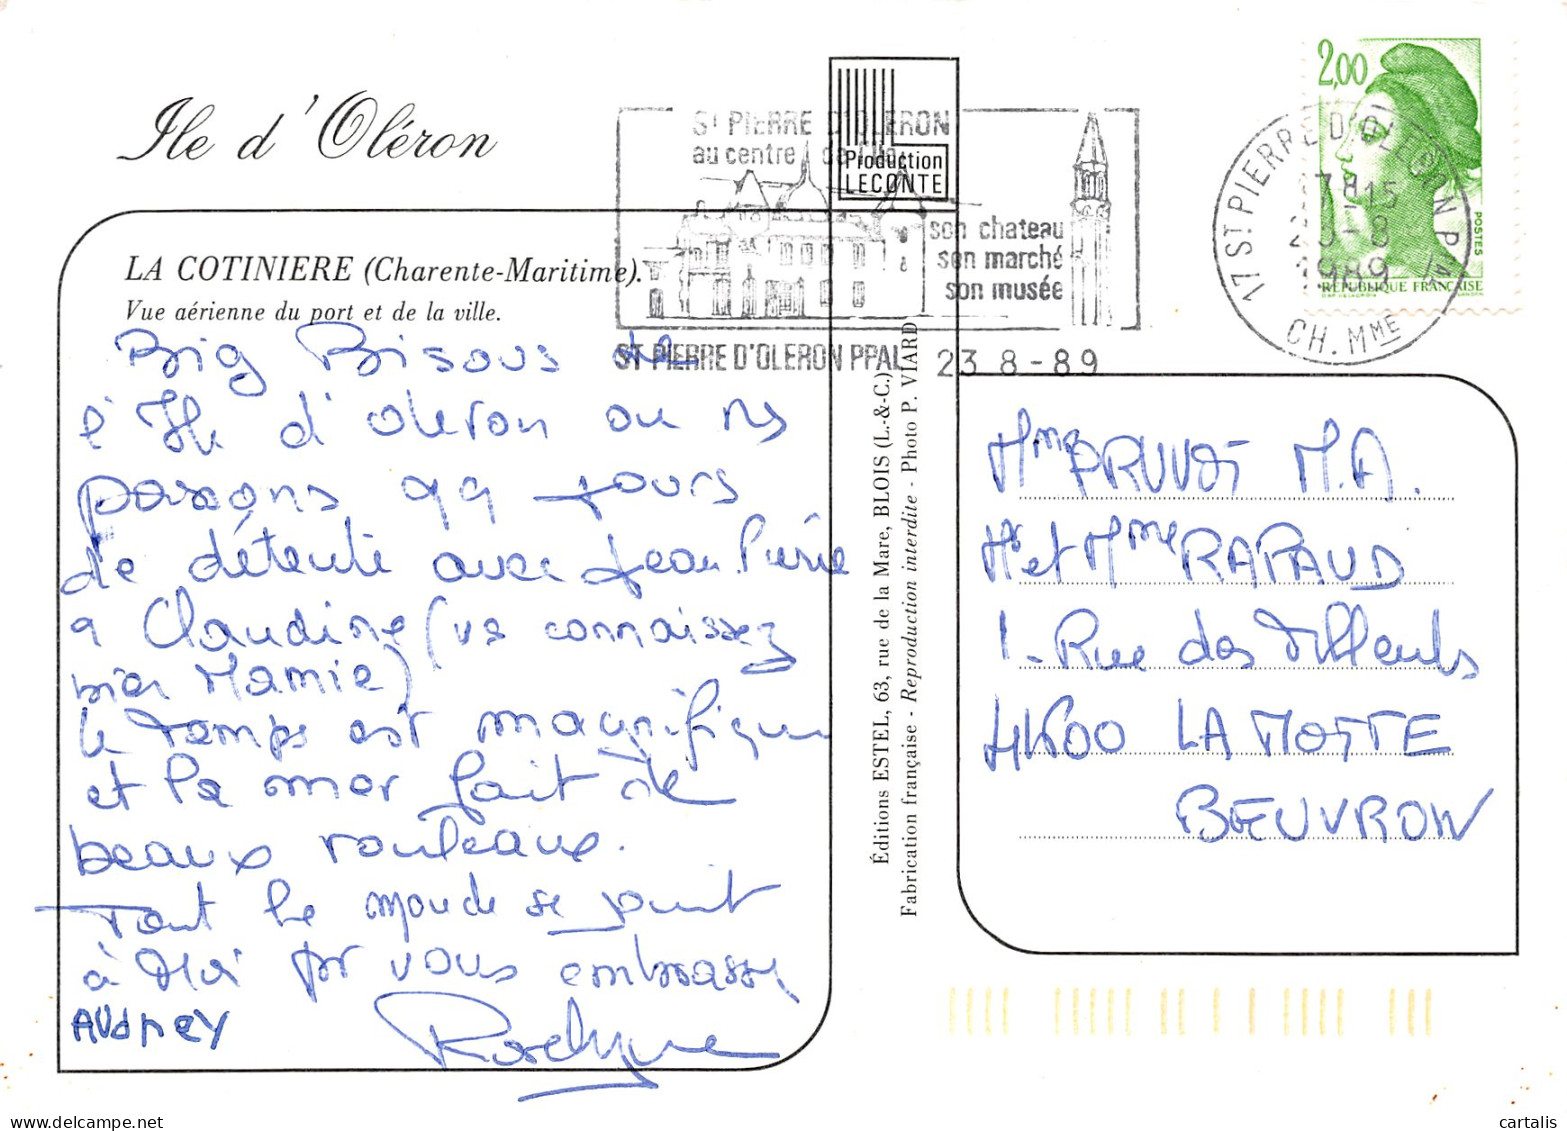 Ile d'Oléron
LA COTINIERE (Charente-Maritime).
Vue aérienne du port et de la ville.
Big Bisous de
l'Ile d'oleron ou ns
passons qq jours
de détente avec Jean Pierre
a Claudine (vs connaissez
bien Mamie)
le temps est magnifique
et la mer fait de
beaux rouleaux.
Tout le monde se joint
à Moi pr vous embrasser
AUdrey
Roselyne
ST PIERRE D'OLERON
au centre de l'île
son chateau
son marché
son musée
ST PIERRE D'OLERON PPAL 23 8-89
Production
LECONTE
Éditions ESTEL, 63, rue de la Mare, BLOIS (L.-&-C.)
Fabrication française - Reproduction interdite - Photo P. VIARD
2,00
POSTES
REPUBLIQUE FRANÇAISE
17 ST PIERRE D'OLERON PPAL
23-8
1989
CH. MME
Mme PRUVOT M.A.
Mr et Mme RAPAUD
1. Rue des Tilleuls
41600 LA MOTTE
BEUVRON
cartalis